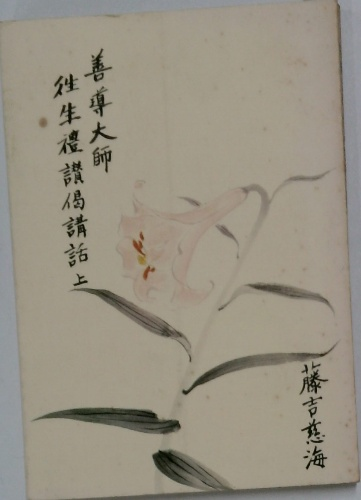 善導大師
徃生禮讃偈講話上
藤吉慈海